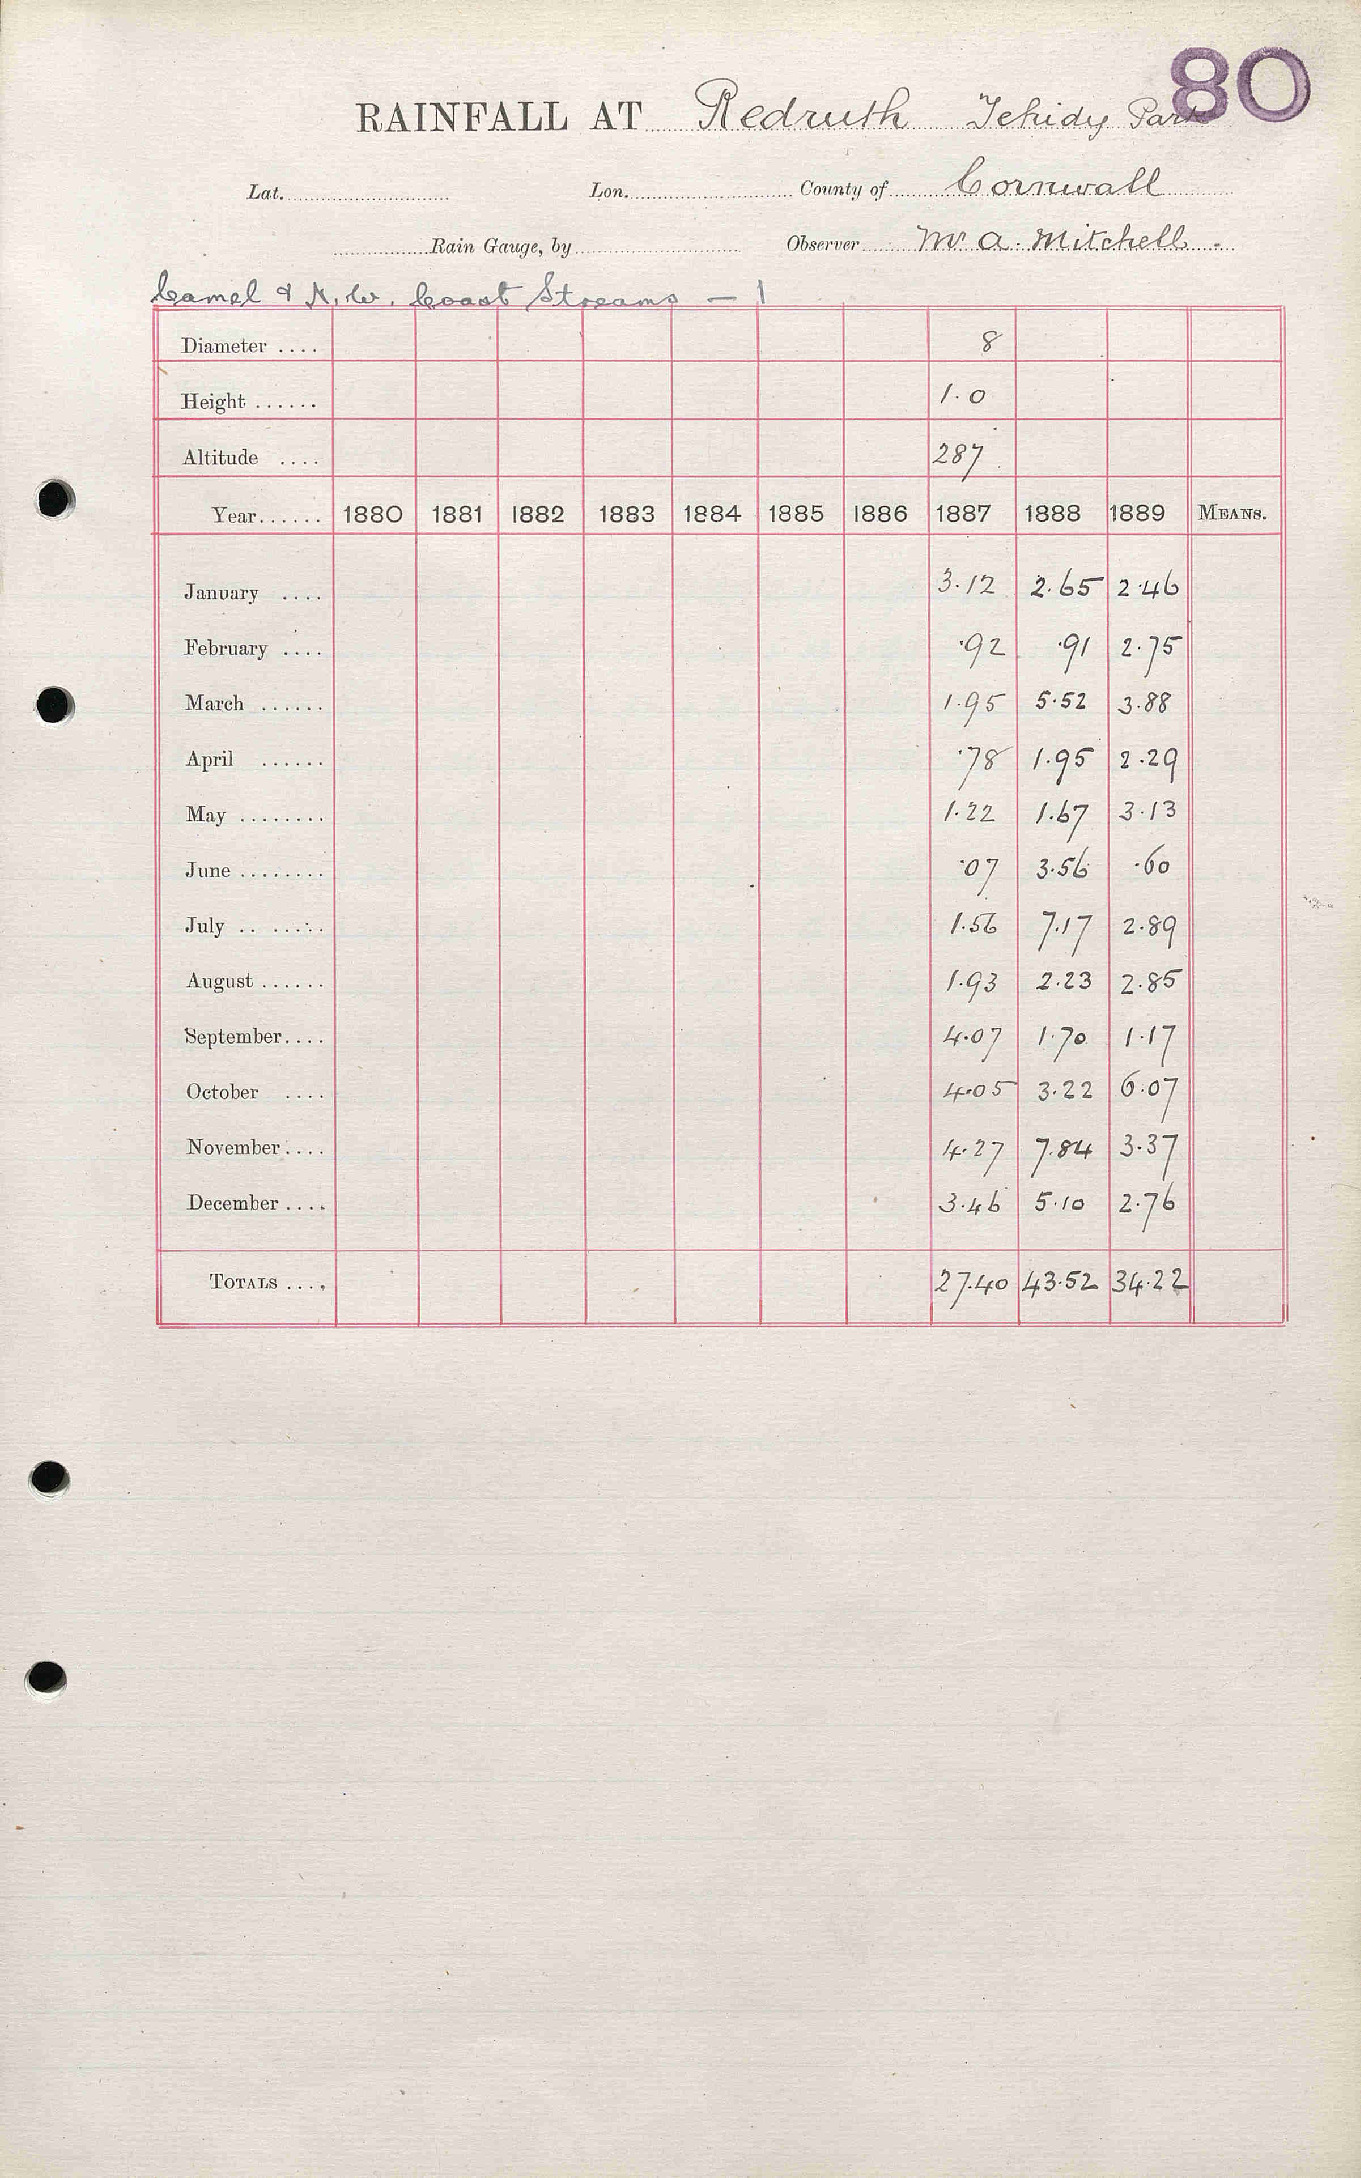 80
RAINFALL AT Redruth Tehidy Park
Lat. Lon. County of Cornwall
Rain Gauge, by Observer Mr A. Mitchell.
Camel & N.W. Coast Streams — 1
Diameter .... 8
Height ...... 1.0
Altitude .... 287
Year...... 1880 1881 1882 1883 1884 1885 1886 1887 1888 1889 MEANS.
January .... 3.12 2.65 2.46
February .... .92 .91 2.75
March ...... 1.95 5.52 3.88
April ...... .78 1.95 2.29
May ........ 1.22 1.67 3.13
June ........ .07 3.56 .60
July .. ...... 1.56 7.17 2.89
August ...... 1.93 2.23 2.85
September.... 4.07 1.70 1.17
October .... 4.05 3.22 6.07
November.... 4.27 7.84 3.37
December .... 3.46 5.10 2.76
TOTALS .... 27.40 43.52 34.22